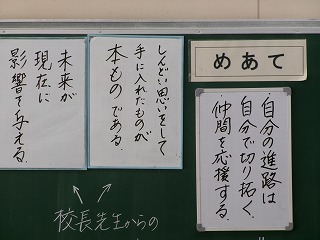 めあて
自分の進路は
自分で切り拓く。
仲間を応援する。
しんどい思いをして
手に入れたものが
本ものである。
未来が
現在に
影響を与える。
校長先生からの